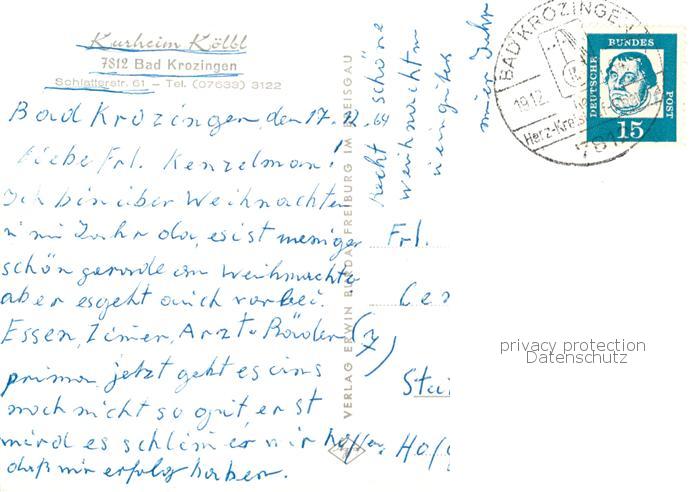 Kurheim Kölbl
7812 Bad Krozingen
Schlatterstr. 61 – Tel. (07633) 3122
Bad Krozingen, den 17.12.64
Liebe Frl. Kenzelman!
Ich bin über Weihnachten
u nui Jahr da, es ist weniger
schön gerade an Weihnachte
aber es geht auch vorbei.
Essen, Zimer, Arzt u Bäder (7)
prima, jetzt geht es uns
noch nicht so gut erst
wird es schlimer wir hoffen,
daß wir erfolg haben.
recht schöne
Weihnachtn
u ein gutes
nuies Jahr
VERLAG ERWIN FREIBURG IM BREISGAU
BAD KROZINGEN
19.12.
Herz-Kreis
7812
DEUTSCHE BUNDES POST
15
Frl.
Stu
privacy protection
Datenschutz